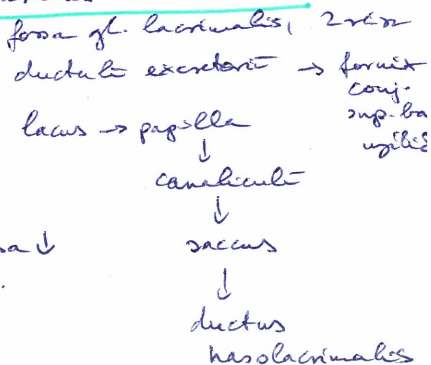 fossa gl. lacrimalis, 2 rész
ductuli excretorii → fornix
conj.
sup. ba
nyílis
lacus → papilla
↓
canaliculi
↓
sa ↓ saccus
↓
ductus
nasolacrimalis